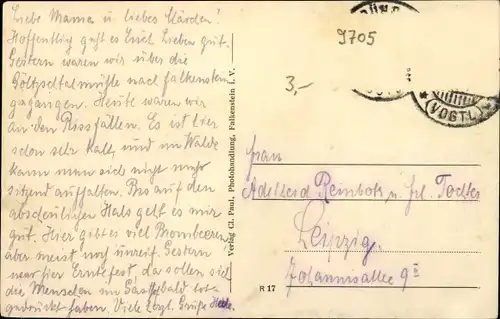 Liebe Mama u. liebes Klärchen!
Hoffentlich geht es Euch Lieben gut.
Gestern waren wir über die
Göltzschtalmühle nach Falkenstein
gegangen. Heute waren wir
an den Rissfällen. Es ist hier
schon sehr kalt, und im Walde
kann man sich nicht mehr
sitzend aufhalten. Bis auf den
abscheulichen Hals geht es mir
gut. Hier gibt es viel Brombeeren,
aber meist noch unreif. Gestern
war hier Erntefest, da sollen sich
die Menschen im Gasthof bald tot-
gedrückt haben. Viele herzl. Grüße
Verlag Cl. Paul, Photohandlung, Falkenstein i. V.
9705
3,-
(VOGTL)
Frau
Adelheid Reinboth u. Frl. Tochter
Leipzig.
Johannisallee 9II
R 17